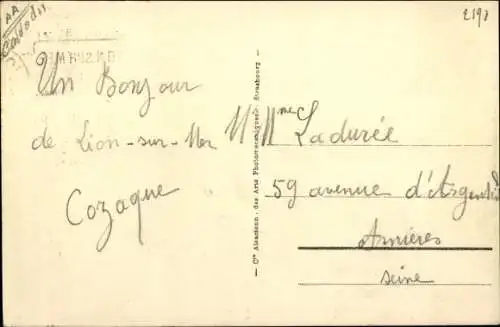 AA
Calvados
2198
Un Bonjour
de Lion-sur-Mer
Cozaque
— Cie Alsacienne des Arts Photomécaniques, Strasbourg —
M Mme Ladurée
59 avenue d'Argenteuil
Asnières
Seine